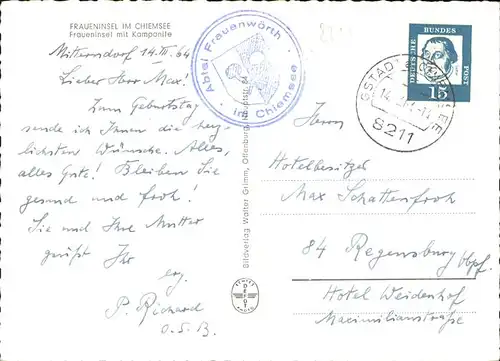 FRAUENINSEL IM CHIEMSEE
Fraueninsel mit Kampanile
14. III. 64
Lieber Herr Max!
Zum Geburtstag
sende ich Ihnen die herz-
lichsten Wünsche. Alles,
alles Gute! Bleiben Sie
gesund und froh!
Sie und Ihre Mutter
grüßt Ihr
erg.
P. Richard
O.S.B.
Abtei Frauenwörth
im Chiemsee
Bildverlag Walter Grimm, Offenburg
DEUTSCHE BUNDESPOST
15
GSTADT
CHIEMSEE
8211
Herrn
Hotelbesitzer
Max Schattenfroh
84 Regensburg/Obpf.
Hotel Weidenhof
Maximilianstraße